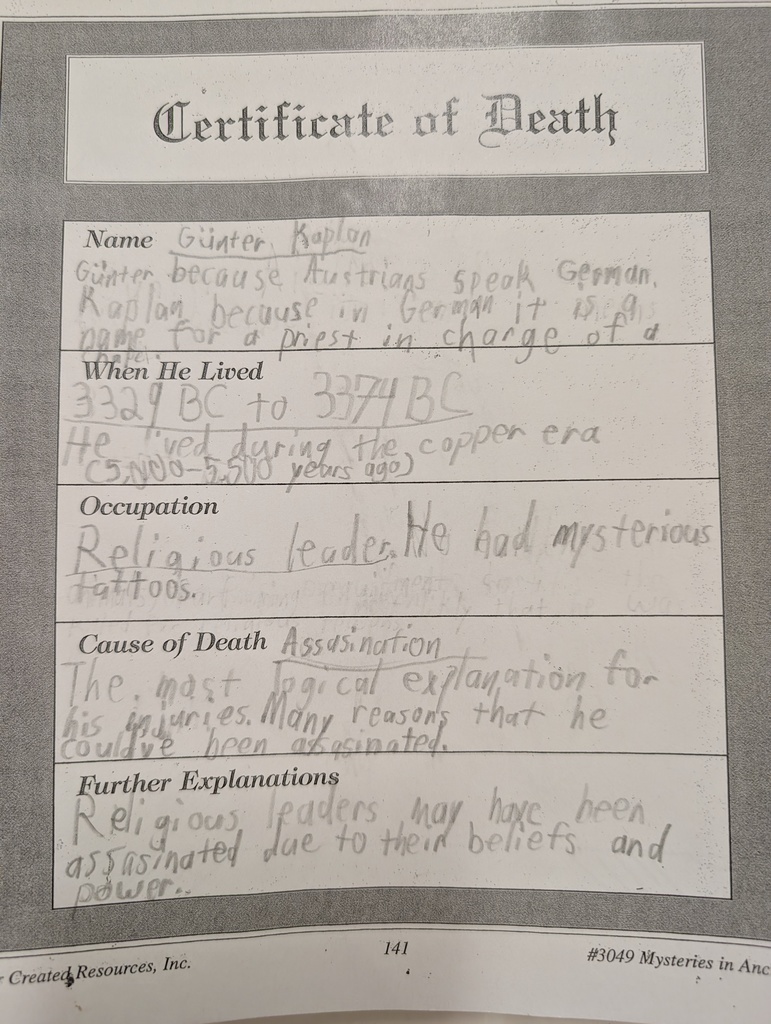 Certificate of Death
Name Günter Kaplan
Günter because Austrians speak German.
Kaplan because in German it is a
name for a priest in charge of a
When He Lived
3329 BC to 3374 BC
He lived during the copper era
(5,000-5,500 years ago)
Occupation
Religious leader. He had mysterious
tattoos.
Cause of Death Assasination
The most logical explanation for
his injuries. Many reasons that he
could've been assasinated.
Further Explanations
Religious leaders may have been
assasinated due to their beliefs and
power.
Created Resources, Inc.
141
#3049 Mysteries in Anc